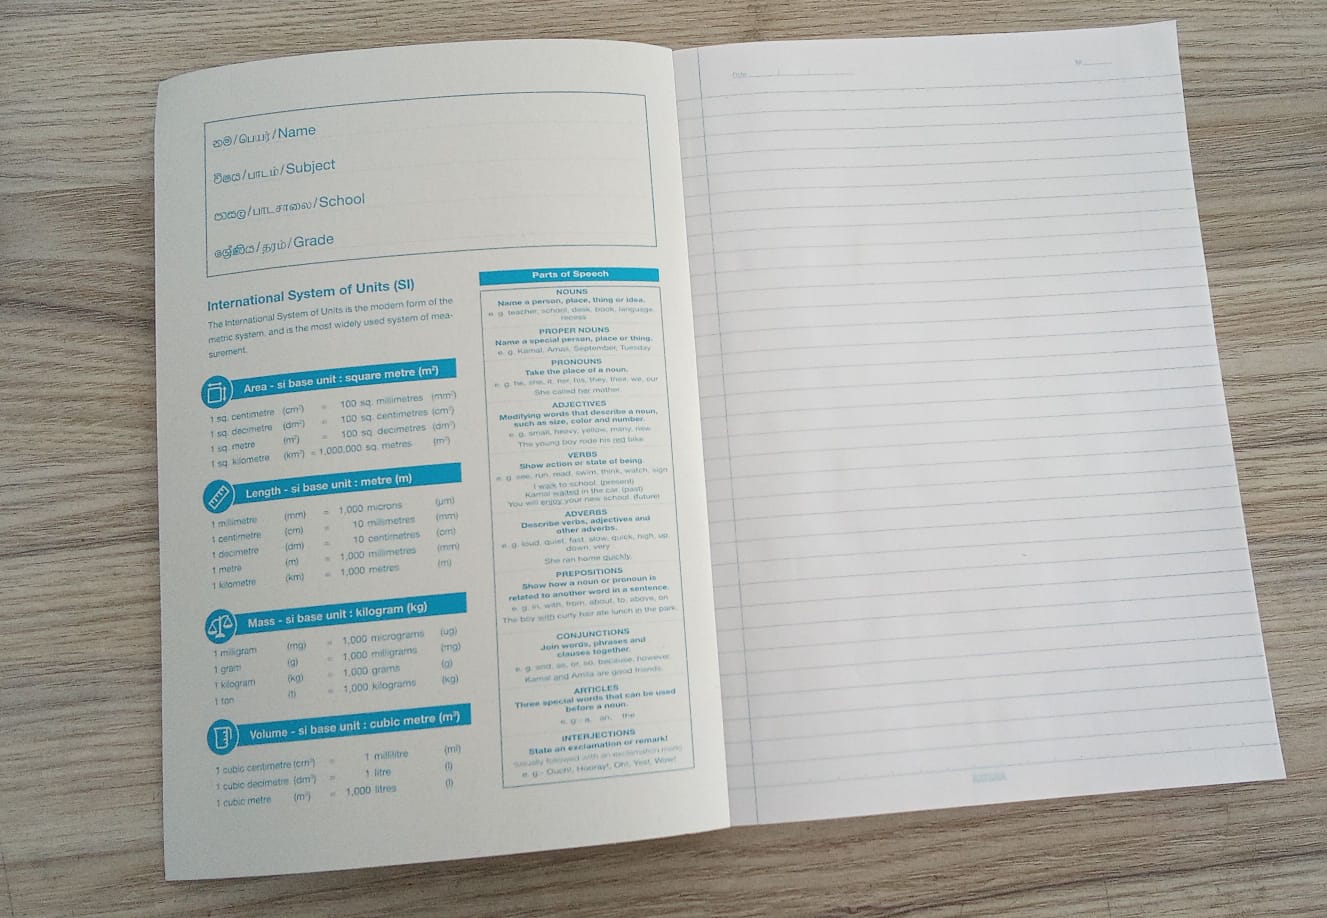 නම/பெயர்/Name
විෂය/பாடம்/Subject
පාසල/பாடசாலை/School
ශ්‍රේණිය/தரம்/Grade
International System of Units (SI)
The International System of Units is the modern form of the
metric system, and is the most widely used system of mea-
surement.
Area - si base unit : square metre (m²)
1 sq. centimetre (cm²) = 100 sq. millimetres (mm²)
1 sq. decimetre (dm²) = 100 sq. centimetres (cm²)
1 sq. metre (m²) = 100 sq. decimetres (dm²)
1 sq. kilometre (km²) = 1,000,000 sq. metres (m²)
Length - si base unit : metre (m)
1 millimetre (mm) = 1,000 microns (µm)
1 centimetre (cm) = 10 millimetres (mm)
1 decimetre (dm) = 10 centimetres (cm)
1 metre (m) = 1,000 millimetres (mm)
1 kilometre (km) = 1,000 metres (m)
Mass - si base unit : kilogram (kg)
1 miligram (mg) = 1,000 micrograms (ug)
1 gram (g) = 1,000 milligrams (mg)
1 kilogram (kg) = 1,000 grams (g)
1 ton (t) = 1,000 kilograms (kg)
Volume - si base unit : cubic metre (m³)
1 cubic centimetre (cm³) = 1 millilitre (ml)
1 cubic decimetre (dm³) = 1 litre (l)
1 cubic metre (m³) = 1,000 litres (l)
Parts of Speech
NOUNS
Name a person, place, thing or idea.
e. g. teacher, school, desk, book, language,
recess
PROPER NOUNS
Name a special person, place or thing.
e. g. Kamal, Amas, September, Tuesday
PRONOUNS
Take the place of a noun.
e. g. he, she, it, her, his, they, their, we, our
She called her mother.
ADJECTIVES
Modifying words that describe a noun,
such as size, color and number.
e. g. small, heavy, yellow, many, new
The young boy rode his red bike
VERBS
Show action or state of being.
e. g. see, run, read, swim, think, watch, sign
I walk to school. (present)
Kamal waited in the car. (past)
You will enjoy your new school. (future)
ADVERBS
Describe verbs, adjectives and
other adverbs.
e. g. loud, quiet, fast, slow, quick, high, up,
down, very
She ran home quickly.
PREPOSITIONS
Show how a noun or pronoun is
related to another word in a sentence.
e. g. in, with, from, about, to, above, on
The boy with curly hair ate lunch in the park.
CONJUNCTIONS
Join words, phrases and
clauses together.
e. g. and, as, or, so, because, however
Kamal and Amila are good friends.
ARTICLES
Three special words that can be used
before a noun.
e. g - a, an, the
INTERJECTIONS
State an exclamation or remark!
(usually followed with an exclamation mark)
e. g - Ouch!, Hooray!, Oh!, Yes!, Wow!
Date